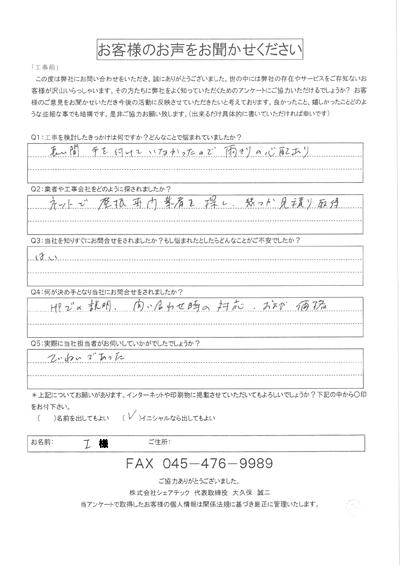 お客様のお声をお聞かせください
「工事前」
この度は弊社にお問い合わせをいただき、誠にありがとうございました。世の中には弊社の存在やサービスをご存知ないお
客様が沢山いらっしゃいます。その方たちに弊社をよく知っていただくためのアンケートにご協力いただけるでしょうか? お客
様のご意見をお聞かせいただき今後の活動に反映させていただきたいと考えております。良かったこと、嬉しかったことどのよ
うな些細な事でも結構です。是非ご協力お願い致します。(出来るだけ具体的に書いていただければ幸いです)
Q1:工事を検討したきっかけは何ですか?どんなことで悩まれていましたか?
長い間 手を付けていなかったので 雨もりの心配あり
Q2:業者や工事会社をどのように探されましたか?
ネットで 屋根専門業者を探し、幾つか見積り取得
Q3:当社を知りすぐにお問合せをされましたか?もし悩まれたとしたらどんなことがご不安でしたか?
はい
Q4:何が決め手となり当社にお問合せをされましたか?
HPでの説明、問い合わせ時の対応、および価格
Q5:実際に当社担当者がお伺いしていかがでしたでしょうか?
ていねいであった
*上記についてお願いがあります。インターネットや印刷物に掲載させていただいてもよろしいでしょうか?下記の中から〇印
をお付下さい。
( )名前を出してもよい (✓)イニシャルなら出してもよい
お名前: I 様 ご住所:
FAX 045-476-9989
ご協力ありがとうございました。
株式会社シェアテック 代表取締役 大久保 誠二
当アンケートで取得したお客様の個人情報は関係法規に基づき厳正に管理いたします。